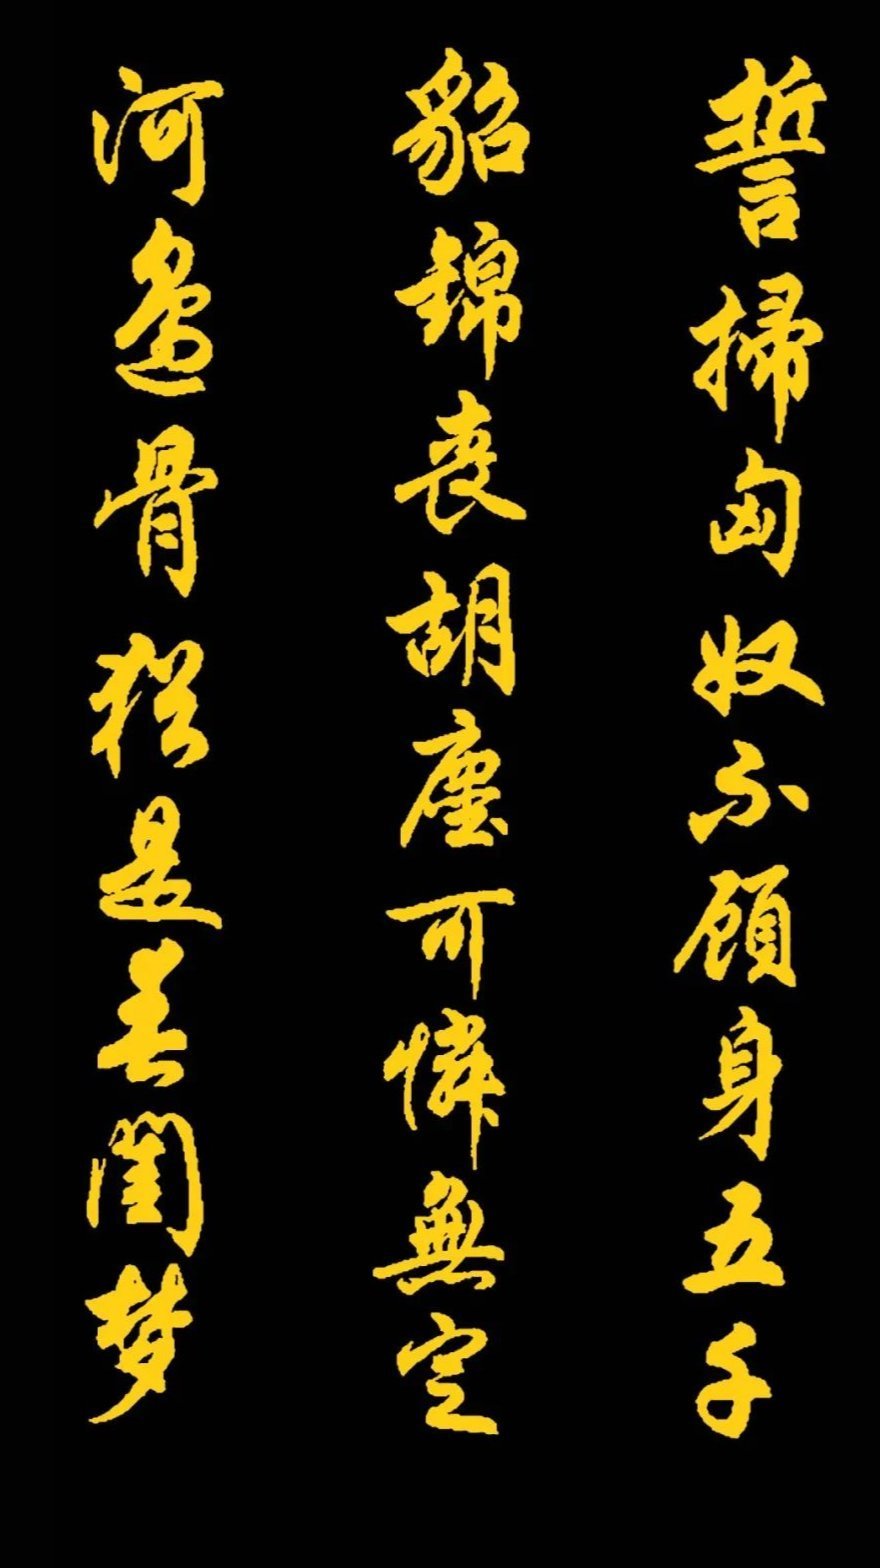 誓掃匈奴不顧身五千
貂錦喪胡塵可憐無定
河邊骨猶是春閨梦